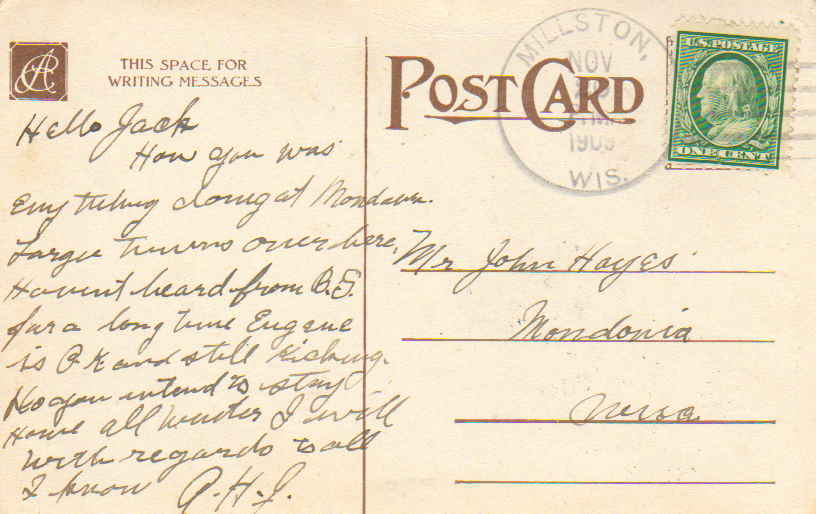 THIS SPACE FOR
WRITING MESSAGES
POST CARD
MILLSTON,
NOV
1909
WIS.
U.S. POSTAGE
ONE CENT
Hello Jack
How you was
Enything doing at Mondavn.
Large towns over here.
Havent heard from B.S.
for a long time Eugene
is O.K and still kicking.
Do you intend to stay
Home all winter I will
With regards to all
I know A.H.J.
Mr John Hayes
Mondovia